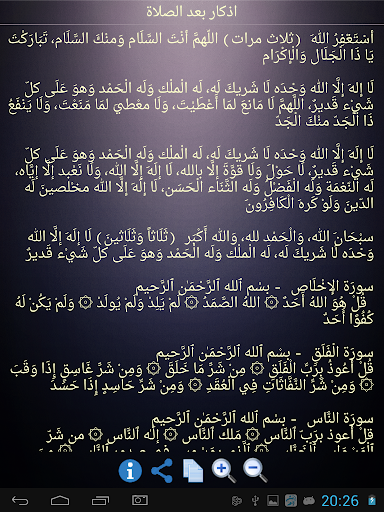 اذكار بعد الصلاة
أَسْتَغْفِرُ اللَّهَ (ثلاث مرات) اللَّهمَّ أَنْتَ السَّلَام وَمنْكَ السَّلَام، تَبَارَكْتَ
يَا ذَا الجَلَال وَالْإكْرَام
لَا إلهَ إلَّا اللَّه وَحْدَه لَا شَريكَ لَه، لَه الْملْك وَلَه الْحَمْد وَهوَ عَلَى كلّ
شَيْء قَديرٌ، اللَّهمَّ لَا مَانعَ لمَا أَعْطَيْتَ، وَلَا معْطيَ لمَا مَنَعْتَ، وَلَا يَنْفَعُ
ذَا الجَدّ منْكَ الْجَدّ
لَا إلَهَ إلَّا اللَّه وَحْدَه لَا شَريكَ لَه، لَه الْملْك وَلَه الْحَمْد وَهوَ عَلَى كلّ
شَيْء قَديرٌ، لَا حَوْلَ وَلَا قوَّةَ إلَّا بالله، لَا إلَهَ إلَّا اللَّه، وَلَا نَعْبد إلَّا إيَّاه،
لَه النّعْمَة وَلَه الْفَضْل وَلَه الثَّنَاء الْحَسَن، لَا إلَهَ إلَّا اللَّه مخْلصينَ لَه
الدّينَ وَلَوْ كَرهَ الْكَافرُونَ
سبْحَانَ اللَّه، وَالْحَمْد لله، وَاللَّه أَكْبَر (ثَلَاثاً وَثَلَاثينَ) لَا إلهَ إلَّا اللَّه
وَحْدَه لَا شَريكَ لَه، لَه الملْك وَلَه الْحَمْد وَهوَ عَلَى كلّ شَيْء قَديرٌ
سورَة الإخْلَاص - بِسْمِ ٱللهِ ٱلرَّحْمَنِ ٱلرَّحِيمِ
قُلْ هُوَ اللهُ أَحَدٌ ۞ اللهُ الصَّمَدُ ۞ لَمْ يَلِدْ وَلَمْ يُولَدْ ۞ وَلَمْ يَكُنْ لَهُ
كُفُوًا أَحَدٌ
سورَة الْفَلَق - بِسْمِ ٱللهِ ٱلرَّحْمَنِ ٱلرَّحِيمِ
قُلْ أَعُوذُ بِرَبِّ الْفَلَقِ ۞ مِنْ شَرِّ مَا خَلَقَ ۞ وَمِنْ شَرِّ غَاسِقٍ إِذَا وَقَبَ
۞ وَمِنْ شَرِّ النَّفَّاثَاتِ فِي الْعُقَدِ ۞ وَمِنْ شَرِّ حَاسِدٍ إِذَا حَسَدَ
سورَة النَّاس - بِسْمِ ٱللهِ ٱلرَّحْمَنِ ٱلرَّحِيمِ
قُلْ أَعُوذُ بِرَبِّ النَّاسِ ۞ مَلِكِ النَّاسِ ۞ إِلَهِ النَّاسِ ۞ مِن شَرِّ
20:26